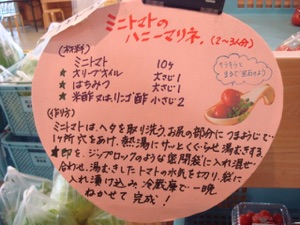 ミニトマトの
ハニーマリネ。(2〜3人分)
(材料)
ミニトマト 10ヶ
★ オリーブオイル 大さじ1
★ はちみつ 大さじ1
★ 米酢又は、リンゴ酢 小さじ2
(作り方)
ミニトマトは、ヘタを取り洗う。お尻の部分につまようじで
1ヶ所穴をあけ、熱湯にサッとくぐらせ湯むきする。
★印を、ジップロックのような密閉袋に入れ混ぜ
合わせ、湯むきしたトマトの水気を切り、袋に
入れ漬け込み、冷蔵庫で一晩
ねかせて完成!